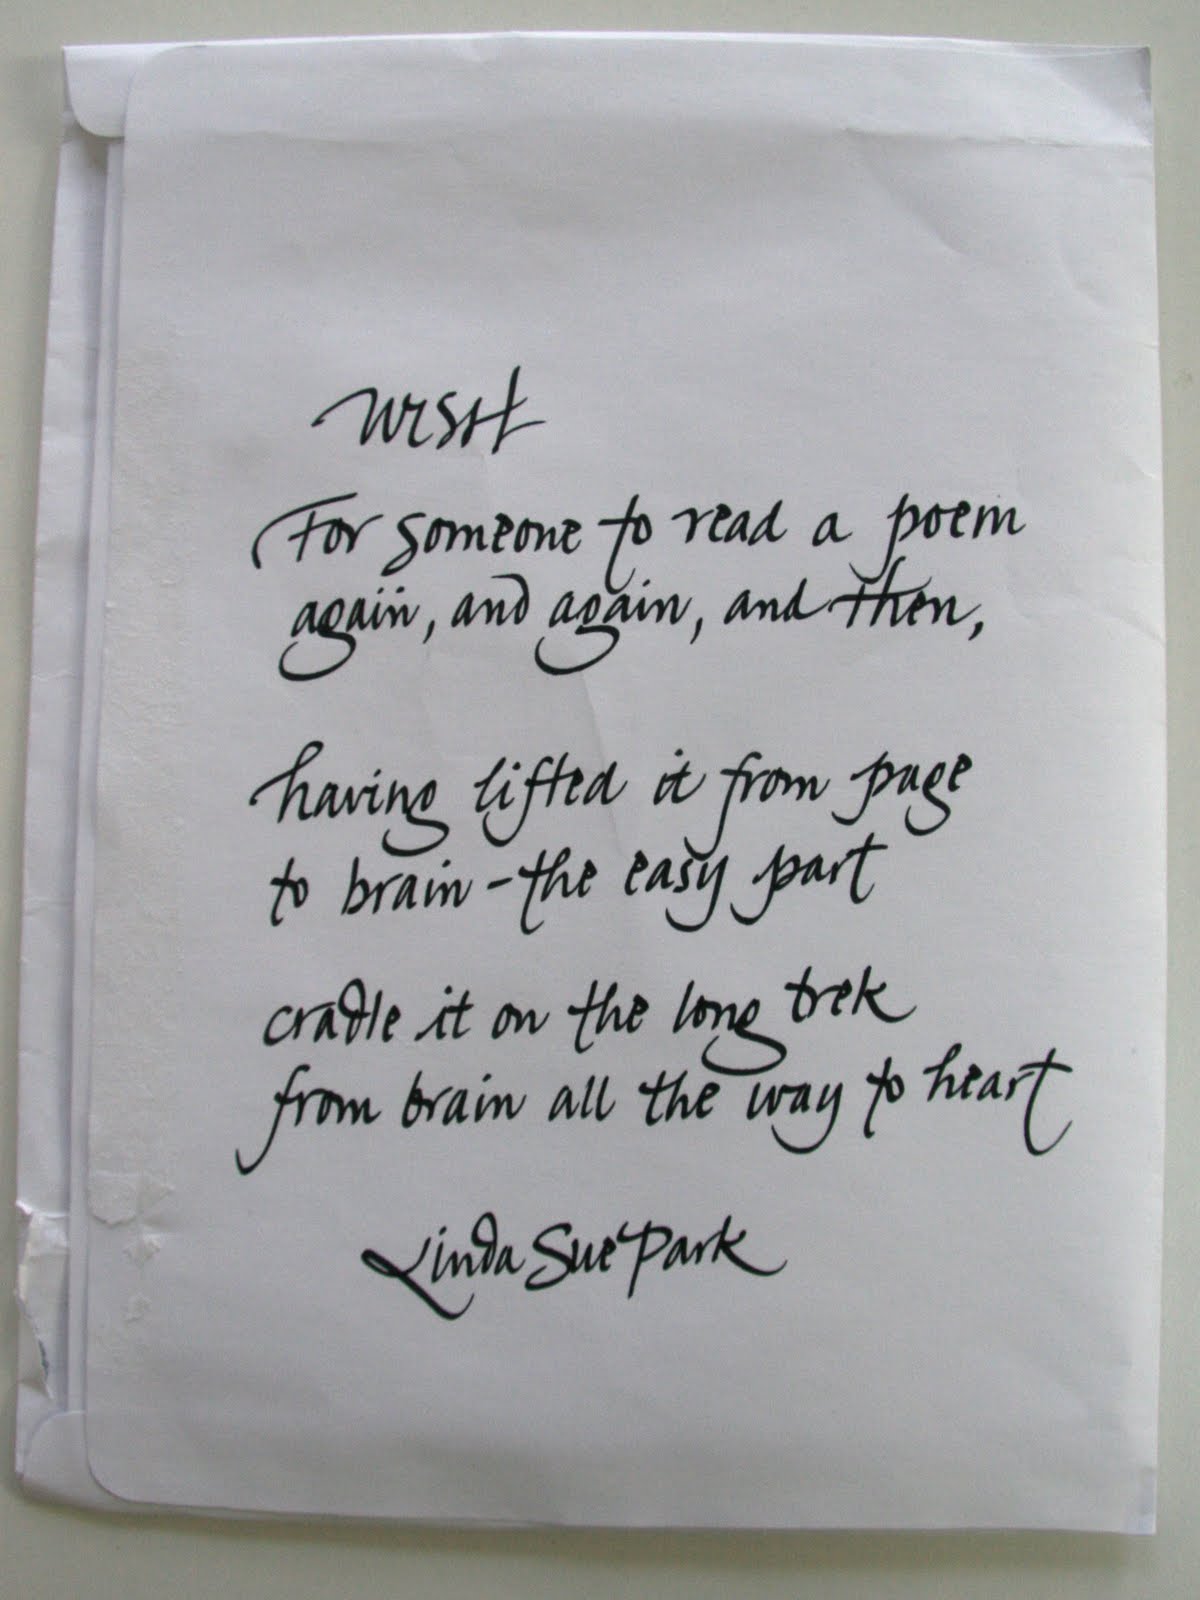 WISH
For someone to read a poem
again, and again, and then,
having lifted it from page
to brain - the easy part
cradle it on the long trek
from brain all the way to heart
Linda Sue Park